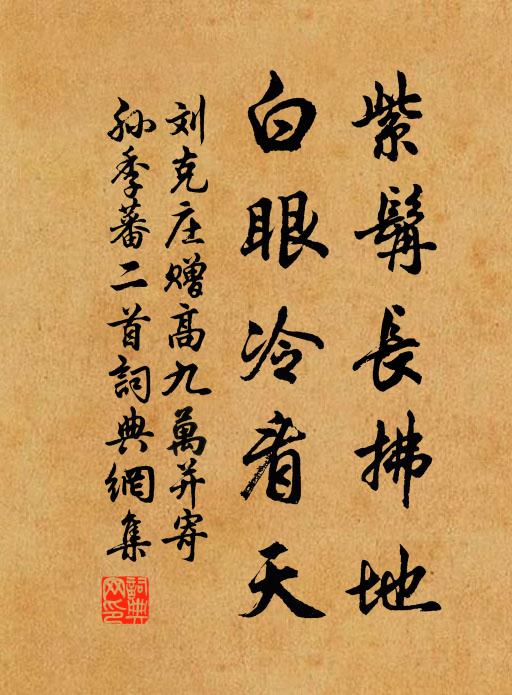 紫髯長拂地
白眼冷看天
刘克庄赠高九萬并寄
孙季蕃二首詞典網集
詞典
网印